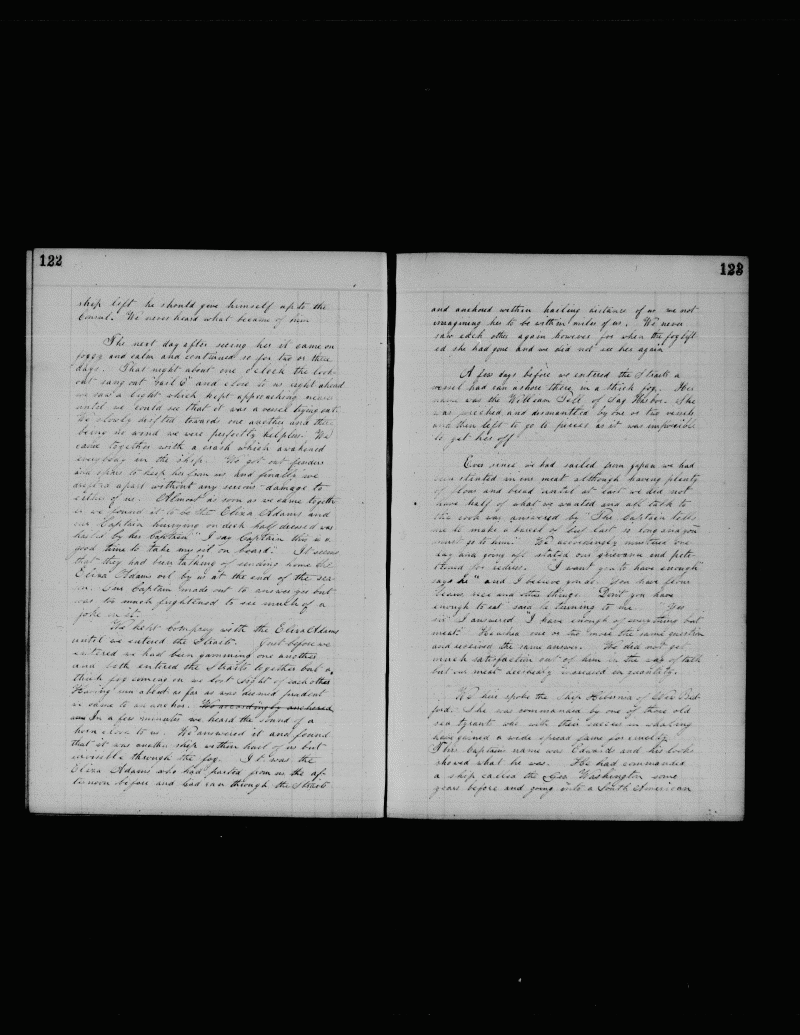 122
ship left he should give himself up to the
Consul. We never heard what became of him
The next day after seeing her it came on
foggy and calm and continued so for two or three
days. That night about one o'clock the look
out sang out "sail O" and close to us right ahead
we saw a light which kept approaching nearer
until we could see that it was a vessel trying out.
We slowly drifted towards one another and there
being no wind we were perfectly helpless. We
came together with a crash which awakened
everybody in the ship. We got out fenders
and spars to keep her from us and finally we
apart without any serious damage to
either of us. Almost as soon as we came togeth
er we found it to be the Eliza Adams and
our Captain hurrying on deck half dressed was
hailed by her Captain "I say Captain this is a
good time to take my oil on board." It seems
that they had been talking of sending home the
Eliza Adams oil by us at the end of the sea
son. Our Captain made out to answer yes but
was too much frightened to see much of a
joke in it.
We kept Company with the Eliza Adams
until we entered the Straits. Just before we
entered we had been gamming one another
and both entered the Straits together but a
thick fog coming on we lost sight of each other
Having run about as far as was deemed prudent
we came to an anchor. We accordingly anchored
and In a few minutes we heard the sound of a
horn close to us. We answered it and found
that it was another ship within hail of us but
invisible through the fog. It was the
Eliza Adams who had parted from us the af
ternoon before and had ran through the Straits
123
and anchored within hailing distance of us we not
imagining her to be within miles of us. We never
saw each other again however for when the fog lift
ed she had gone and we did not see her again
A few days before we entered the Straits a
vessel had ran ashore there in a thick fog. Her
name was the William Tell of Sag Harbor. She
was wrecked and dismantled by one or two vessels
and then left to go to pieces as it was impossible
to get her off
Ever since we had sailed from Japan we had
been stinted in our meat although having plenty
of flour and bread until at last we did not
have half of what we wanted and all talk to
the cook was answered by "The Captain tells
me to make a barrel of beef last so long and you
must go to him." We accordingly mustered one
day and going aft stated our grievance and peti
tioned for redress. "I want you to have enough"
says he "and I believe you do. You have flour
beans rice and other things. Don't you have
enough to eat" said he turning to me. "Yes
sir" I answered "I have enough of everything but
meat." He asked one or two more the same question
and received the same answer. We did not get
much satisfaction out of him in the way of talk
but our meat increased in quantity.
We here spoke the Ship Hibernia of New Bed
ford. She was commanded by one of those old
sea tyrants who with their success in whaling
have gained a wide spread fame for cruelty.
This Captains name was Edwards and his looks
showed what he was. He had commanded
a ship called the Geo. Washington some
years before and going into a South American